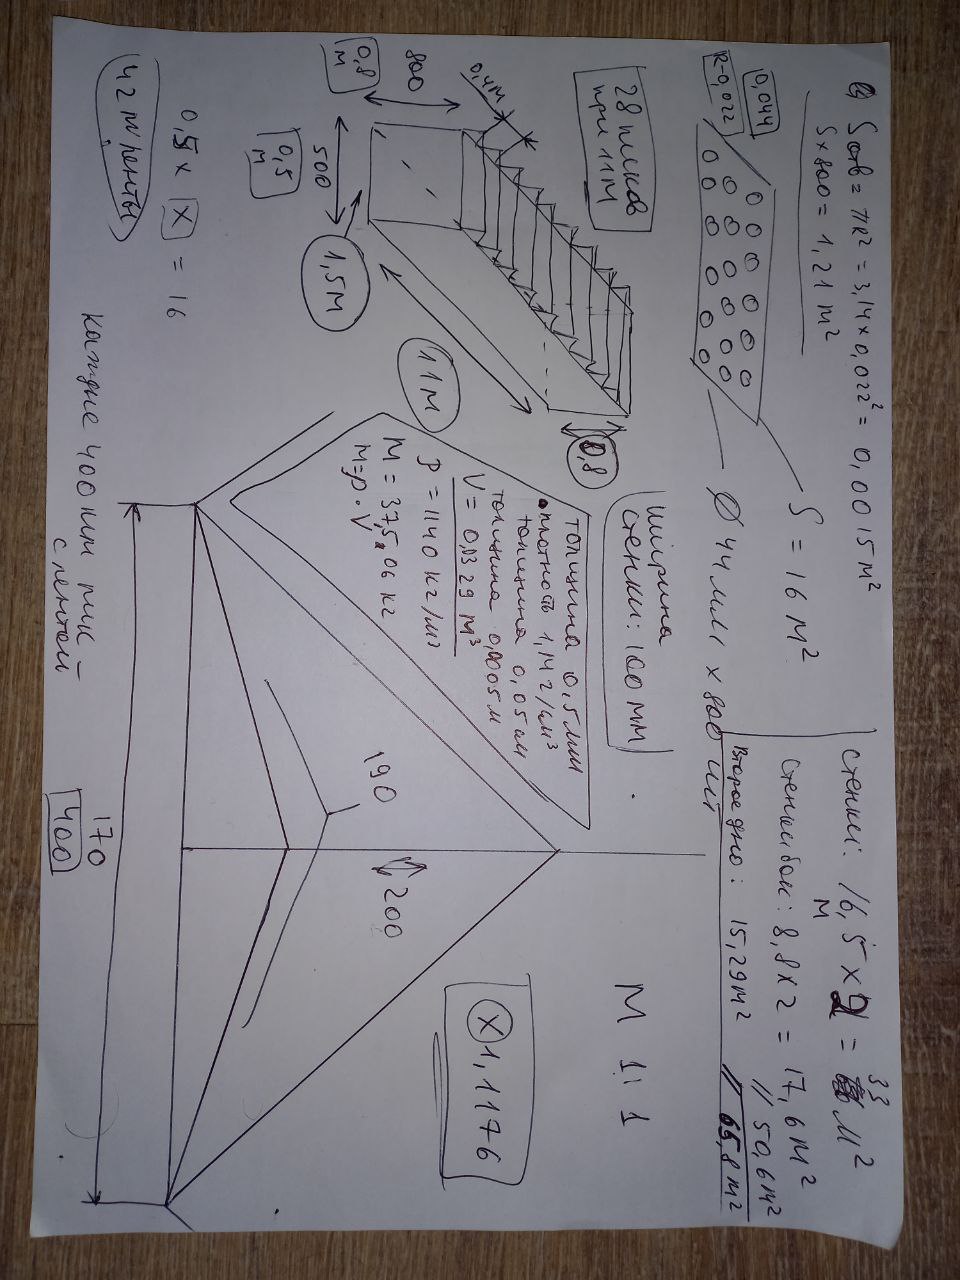 S отв = πR² = 3,14 × 0,022² = 0,0015 м²
S × 800 = 1,21 м²
0,044
R-0,022
S = 16 м²
Ø 44 мм × 800 шт
стенки: 16,5 × 2 = 33 м²
м
стенки бок: 8,8 × 2 = 17,6 м²
// 50,6 м²
Второе дно: 15,29 м²
// 65,8 м²
28 пиков
при 11 м
0,4м
800
0,8
м
500
0,5
м
1,5м
11м
0,8
42 м/ленты
0,5 × X = 16
ширина
стенки: 100 мм
толщина 0,5 мм
плотность 1,14 г/см³
толщина 0,05 см
толщина 0,0005 м
V = 0,0329 м³
ρ = 1140 кг/м³
M = 37,506 кг
M = ρ · V
М 1:1
X 1,1176
190
200
каждые 400 мм пик -
с лентой
170
400